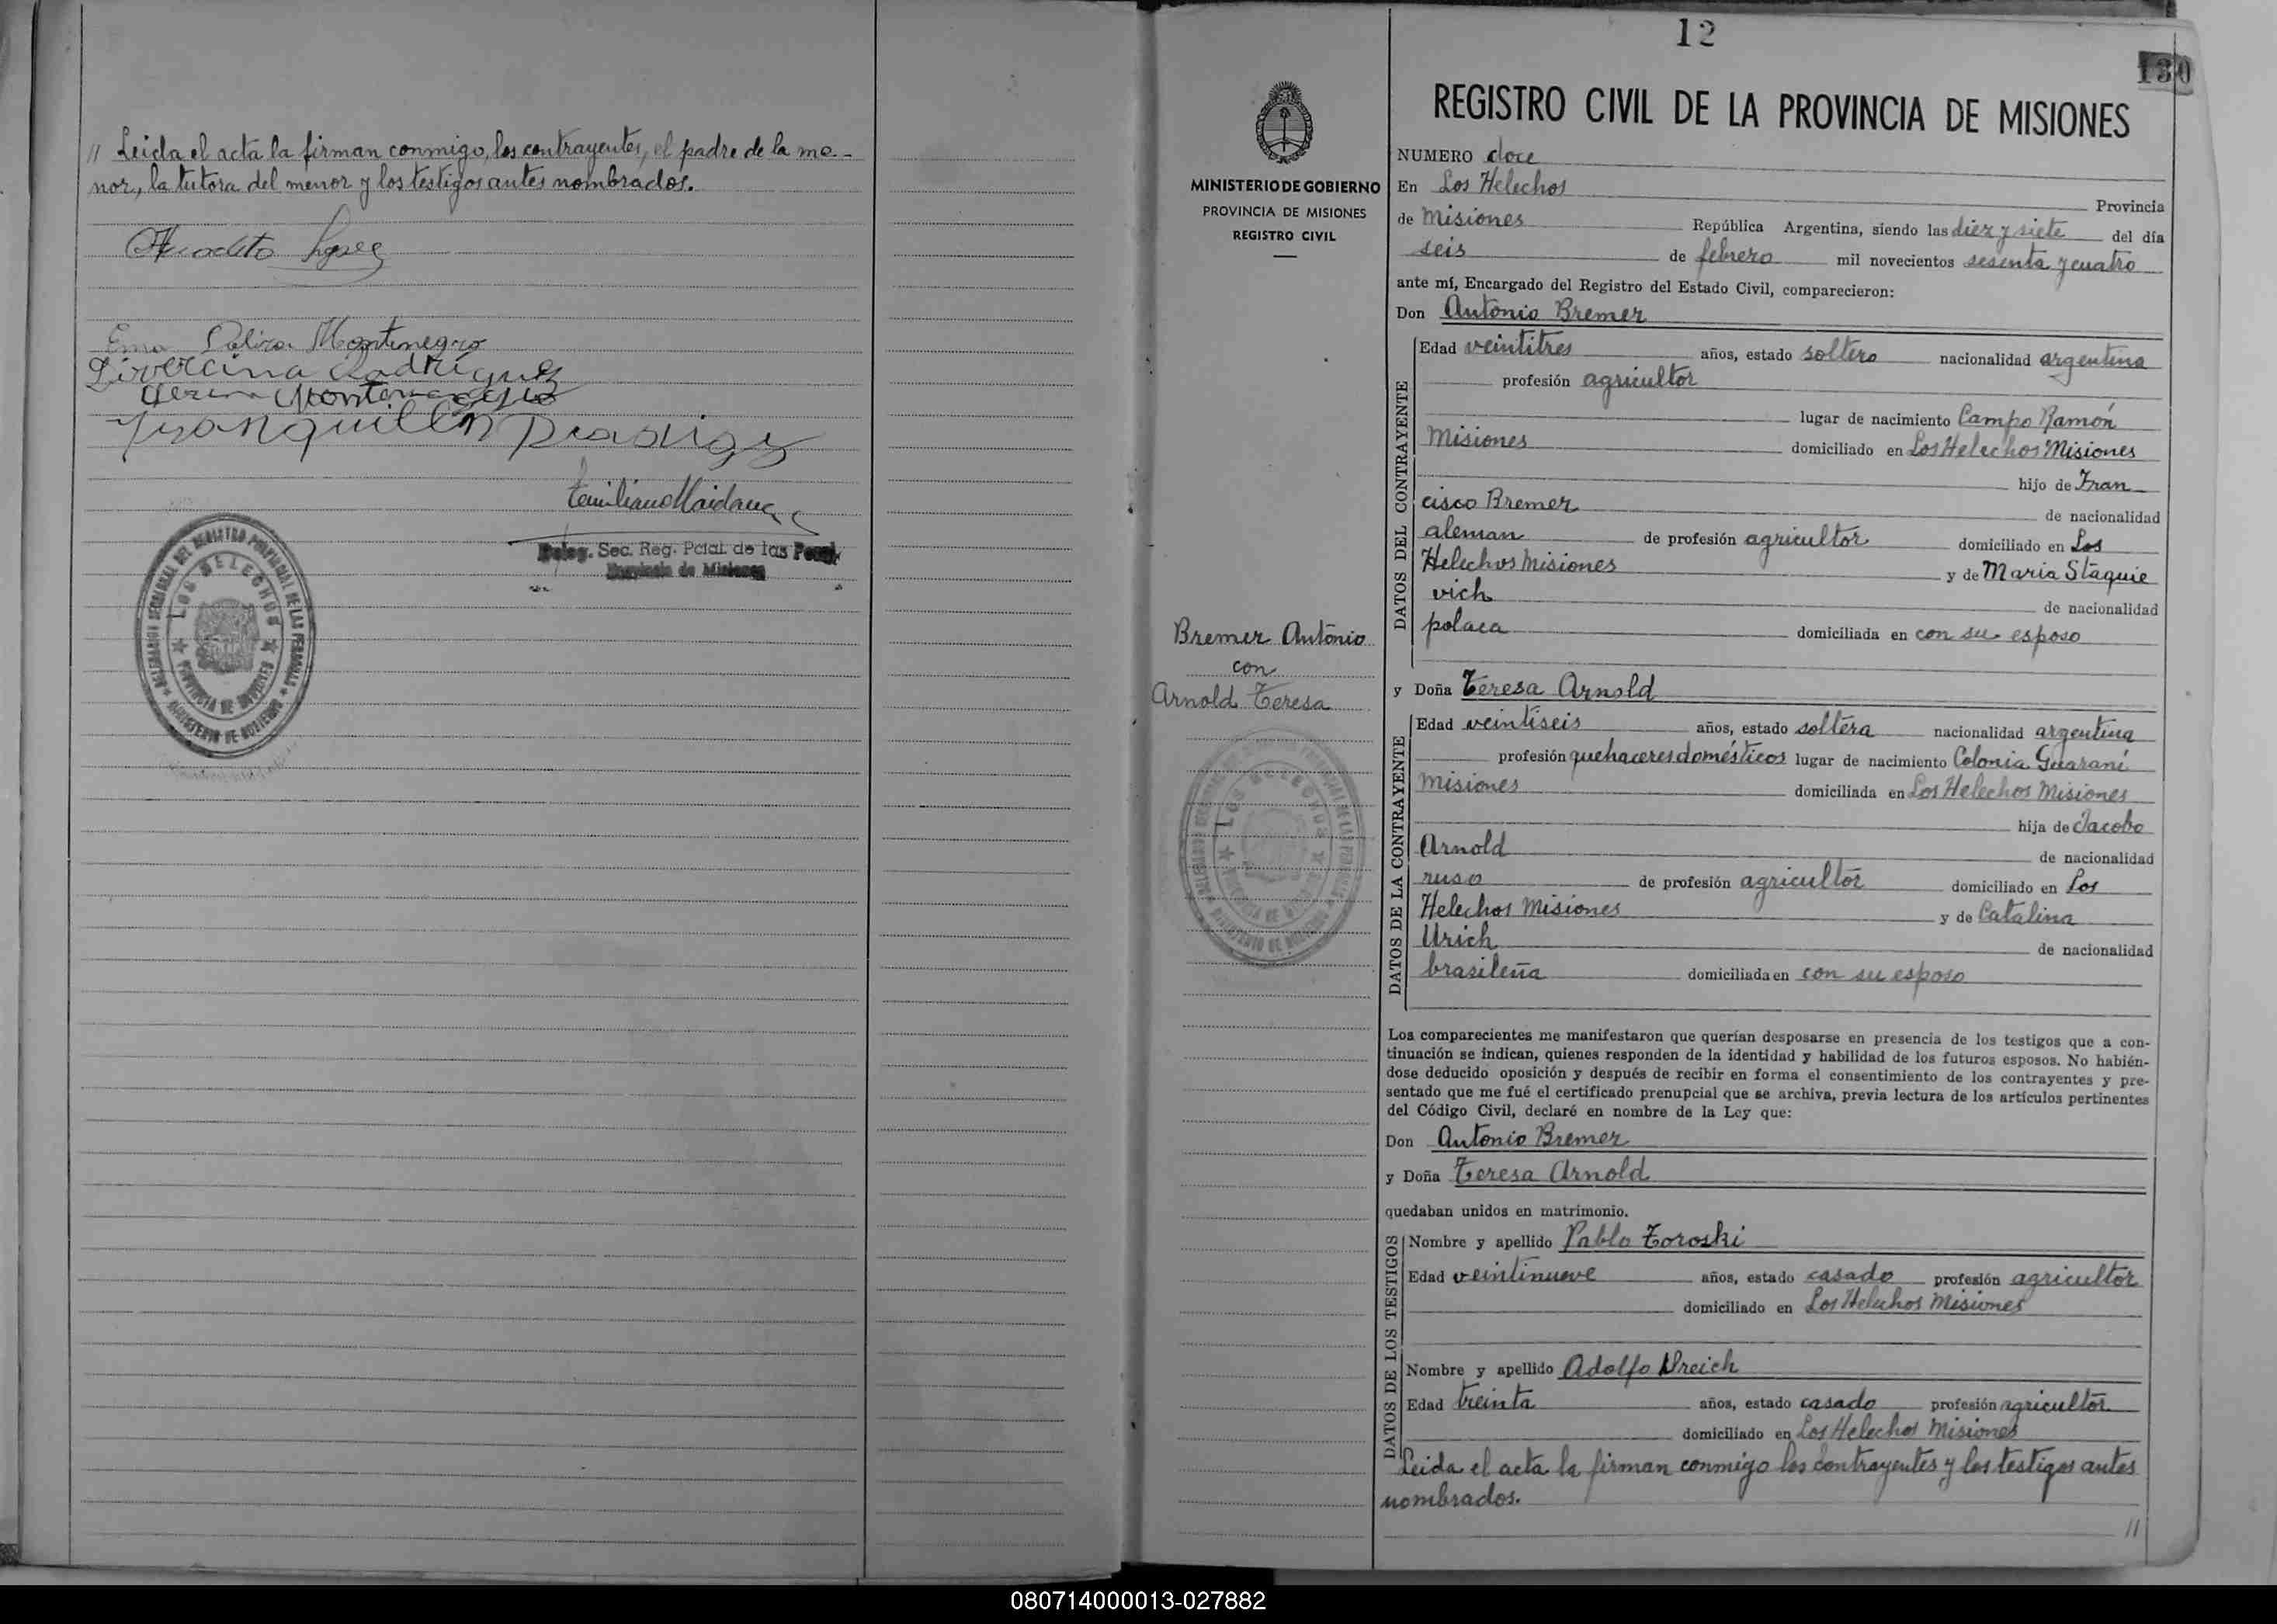 // Leida el acta la firman conmigo, los contrayentes, el padre de la me-
nor, la tutora del menor y los testigos antes nombrados.
Lopez
Ema Montenegro
Rodriguez
Deleg. Sec. Reg. Pcial. de las
Provincia de Misiones
LOS HELECHOS
PROVINCIA DE MISIONES
MINISTERIO DE GOBIERNO
12
130
MINISTERIO DE GOBIERNO
PROVINCIA DE MISIONES
REGISTRO CIVIL
Bremer Antonio
con
Arnold Teresa
LOS HELECHOS
REGISTRO CIVIL DE LA PROVINCIA DE MISIONES
NUMERO doce
En Los Helechos Provincia
de Misiones República Argentina, siendo las diez y siete del día
seis de febrero mil novecientos sesenta y cuatro
ante mí, Encargado del Registro del Estado Civil, comparecieron:
Don Antonio Bremer
DATOS DEL CONTRAYENTE
Edad veintitres años, estado soltero nacionalidad argentina
profesión agricultor
lugar de nacimiento Campo Ramón
Misiones domiciliado en Los Helechos Misiones
hijo de Fran
cisco Bremer de nacionalidad
aleman de profesión agricultor domiciliado en Los
Helechos Misiones y de Maria Staquie
vich de nacionalidad
polaca domiciliada en con su esposo
y Doña Teresa Arnold
DATOS DE LA CONTRAYENTE
Edad veintiseis años, estado soltera nacionalidad argentina
profesión quehaceres domésticos lugar de nacimiento Colonia Guaraní
Misiones domiciliada en Los Helechos Misiones
hija de Jacobo
Arnold de nacionalidad
ruso de profesión agricultor domiciliado en Los
Helechos Misiones y de Catalina
Urich de nacionalidad
brasileña domiciliada en con su esposo
Los comparecientes me manifestaron que querían desposarse en presencia de los testigos que a con-
tinuación se indican, quienes responden de la identidad y habilidad de los futuros esposos. No habién-
dose deducido oposición y después de recibir en forma el consentimiento de los contrayentes y pre-
sentado que me fué el certificado prenupcial que se archiva, previa lectura de los artículos pertinentes
del Código Civil, declaré en nombre de la Ley que:
Don Antonio Bremer
y Doña Teresa Arnold
quedaban unidos en matrimonio.
DATOS DE LOS TESTIGOS
Nombre y apellido Pablo Toroski
Edad veintinueve años, estado casado profesión agricultor
domiciliado en Los Helechos Misiones
Nombre y apellido Adolfo Ureich
Edad treinta años, estado casado profesión agricultor
domiciliado en Los Helechos Misiones
Leida el acta la firman conmigo los contrayentes y los testigos antes
nombrados.
//
080714000013-027882